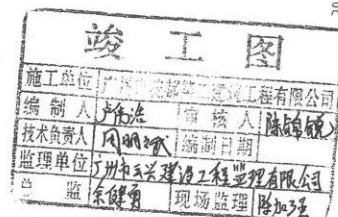 竣工图
施工单位 广州 建筑工程有限公司
编制人 卢伟治 审核人 陈锦镜
技术负责人 周明斌 编制日期
监理单位 广州市云兴建设工程监理有限公司
总监 余健勇 现场监理 陈加强